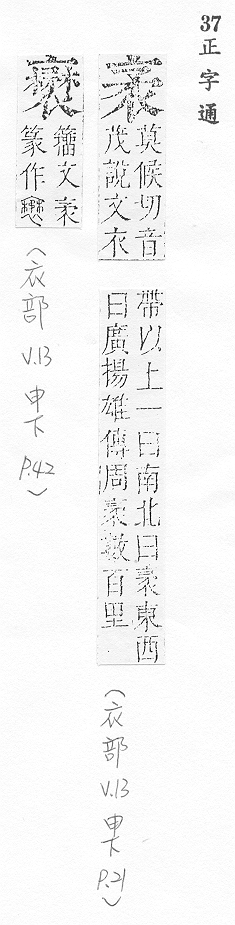 37正字通
袤
莫候切音
茂說文衣
帶以上一曰南北曰袤東西
曰廣揚雄傳周袤數百里
(衣部 V.13 申下 P.21)
籀文袤
篆作
(衣部 V.13 申下 P.42)